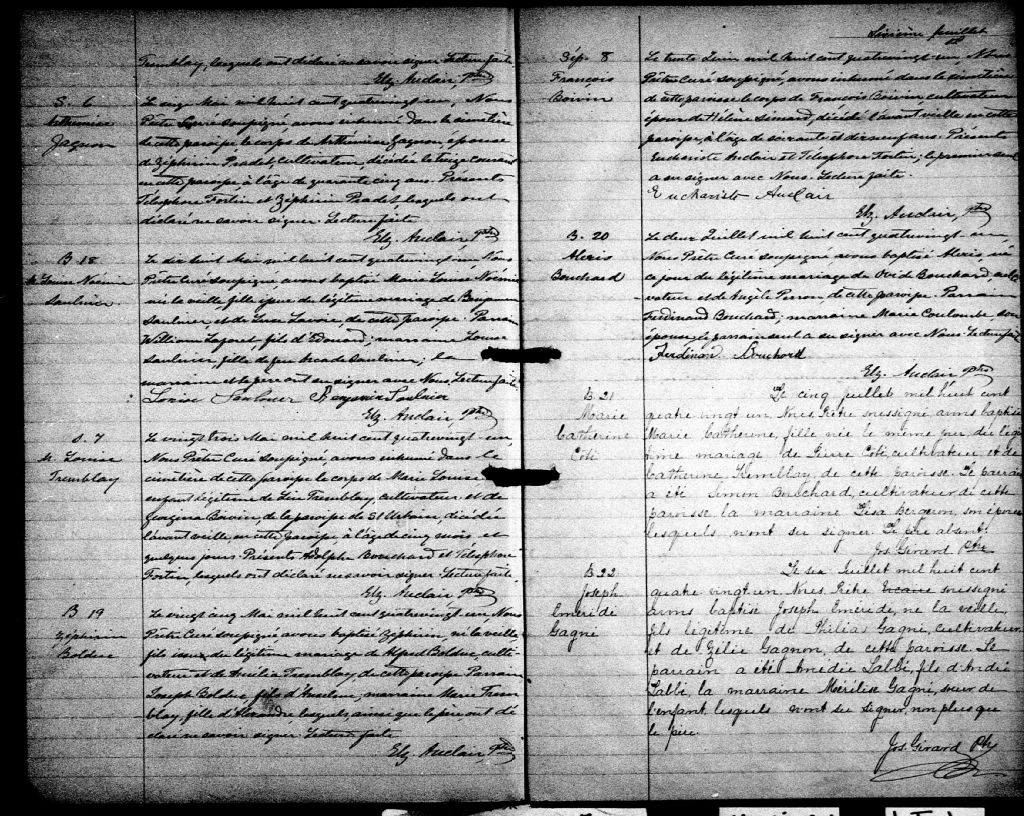 Tremblay, lesquels ont déclaré ne savoir signer. Lecture faite
Elz. Auclair, Ptre
S. 6
Arthémise
Gagnon
Le seize Mai mil huit cent quatrevingt-un, Nous
Prêtre Curé soussigné, avons inhumé dans le cimetière
de cette paroisse le corps de Arthémise Gagnon, épouse
de Zéphirin Pradet, cultivateur, décédée le treize courant
en cette paroisse à l'âge de quarante cinq ans. Présents
Télesphore Fortin et Zéphirin Pradet, lesquels ont
déclaré ne savoir signer. Lecture faite
Elz. Auclair, Ptre
B 18
M. Louise Noémie
Saulnier
Le dix huit Mai mil huit cent quatrevingt un Nous
Prêtre Curé soussigné, avons baptisé Marie Louise Noémie
née la veille, fille issue du légitime mariage de Benjamin
Saulnier, et de Luce Lavoie, de cette paroisse. Parrain
William Laforet, fils d'Edouard; marraine Louise
Saulnier, fille de feu Arcade Saulnier; la
marraine et le père ont su signer avec Nous. Lecture faite
Louise Saulnier Benjamin Saulnier
Elz. Auclair, Ptre
S. 7
M. Louise
Tremblay
Le vingt trois Mai mil huit cent quatrevingt un,
Nous Prêtre Curé soussigné, avons inhumé dans le
cimetière de cette paroisse le corps de Marie Louise
enfant légitime de Tremblay, cultivateur et de
Georgina Boivin, de la paroisse de St Urbain, décédée
l'avant veille en cette paroisse à l'âge de cinq mois, et
quelques jours. Présents Adolphe Bouchard et Télesphore
Fortin, lesquels ont déclaré ne savoir signer. Lecture faite,
Elz. Auclair Ptre
B 19
Zéphirin
Bolduc
Le vingt cinq Mai mil huit cent quatrevingt un, Nous
Prêtre Curé soussigné avons baptisé Zéphirin, né la veille
fils issu du légitime mariage de Alfred Bolduc, culti-
vateur et de Amélia Tremblay, de cette paroisse. Parrain
Joseph Bolduc, fils d'Anselme, marraine Marie Trem
blay, fille d'Alexandre lesquels, ainsi que le père ont dé
claré ne savoir signer. Lecture faite
Elz. Auclair, Ptre
Sixième feuillet
Sép. 8
François
Boivin
Le trente Juin mil huit cent quatrevingt-un, Nous
Prêtre Curé soussigné, avons inhumé dans le cimetière
de cette paroisse le corps de François Boivin cultivateur
époux de Hélène Simard, décédé l'avant veille en cette
paroisse, à l'âge de soixante et dix neuf ans. Présents
Euchariste Auclair et Télesphore Fortin; le premier seul
a su signer avec Nous. Lecture faite.
Euchariste Auclair
Elz. Auclair, Ptre
B. 20
Alexis
Bouchard
Le deux Juillet mil huit cent quatrevingt-un
Nous Prêtre Curé soussigné avons baptisé Alexis, né
ce jour du légitime mariage de Ovide Bouchard, culti
vateur et de Angèle Perron, de cette paroisse. Parrain
Ferdinand Bouchard; marraine Marie Coulombe, son
épouse, le parrain seul a su signer avec Nous. Lecture faite
Ferdinan Bouchard
Elz. Auclair Ptre
B. 21
Marie
Catherine
Coté
Le cinq juillet mil huit cent
quatre vingt un, Nous Prêtre soussigné avons baptisé
Marie Catherine, fille née le même jour, du légi
time mariage de Pierre Coté, cultivateur, et de
Catherine Tremblay, de cette paroisse. Le parrain
a été Simon Bouchard, cultivateur de cette
paroisse, la marraine Lisa Bergeron, son épouse
lesquels n'ont su signer. Le père absent.
Jos. Girard Ptre
B 22
Joseph
Eméride
Gagné
Le six Juillet mil huit cent
quatre vingt un, Nous Prêtre Vicaire soussigné
avons baptisé Joseph Eméride, né la veille,
fils légitime de Philias Gagné, cultivateur,
et de Zélie Gagnon, de cette paroisse. Le
parrain a été Amédée Labbé, fils d'André
Labbé, la marraine Mérilise Gagné, sœur de
l'enfant, lesquels n'ont su signer, non plus que
le père.
Jos. Girard Ptre